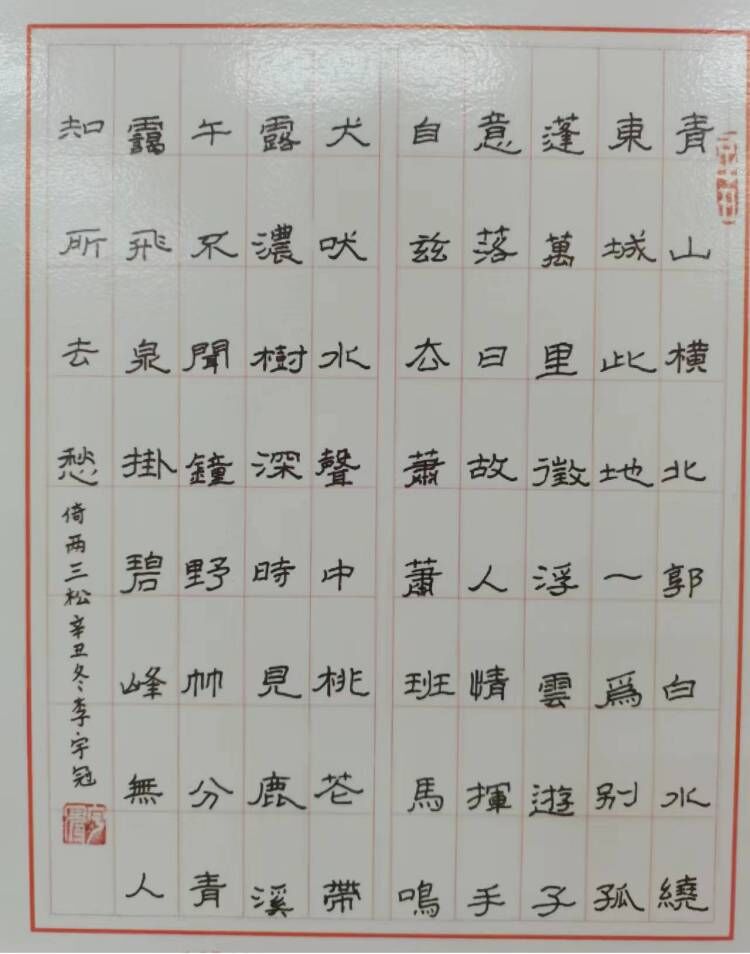 青山橫北郭白水繞
東城此地一爲别孤
蓬萬里徵浮雲遊子
意落日故人情揮手
自兹去蕭蕭班馬鳴
犬吠水聲中桃花帶
露濃樹深時見鹿溪
午不聞鐘野竹分青
靄飛泉掛碧峰無人
知所去愁倚两三松辛丑冬李宇冠